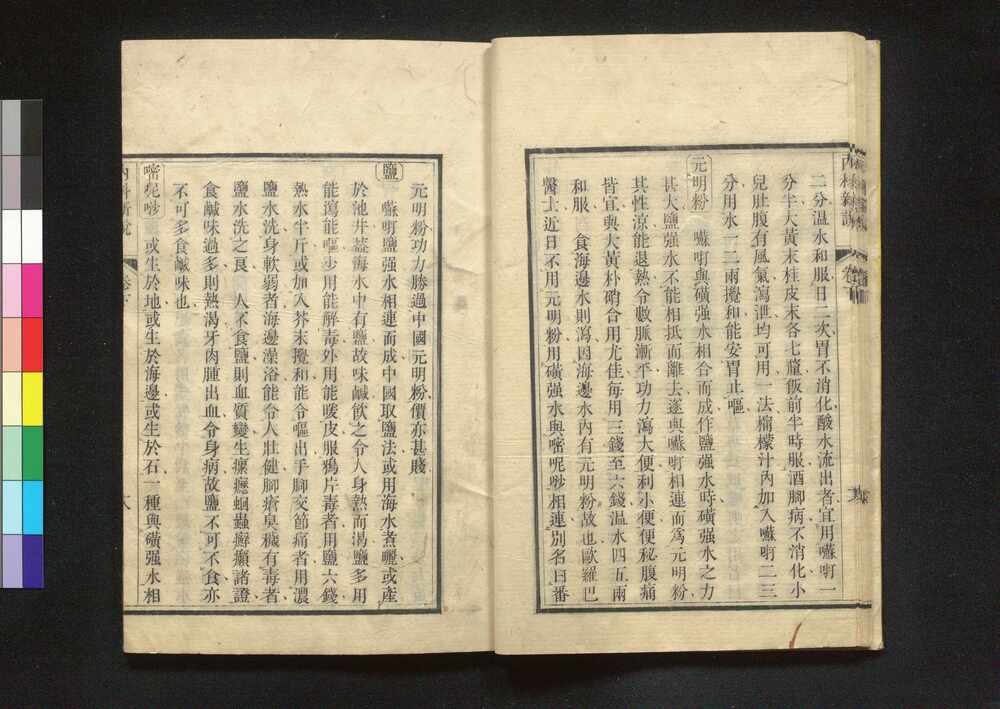 二分温水和服日二三次胃不消化酸水流出者宜用囌
分半大黃末桂皮末各七釐飯前半時服酒脚病不消化小
兒肚腹有風氣瀉泄均可用一法檸檬汁內加入囌二三
分用水一二兩攪和能安胃止嘔
元明粉 囌與磺强水相合而成作鹽强水時磺强水之力
甚大鹽强水不能相抵而離去遂與囌相連而爲元明粉
其性涼能退熱令數脈漸平功力瀉大便利小便便秘腹痛
皆宜與大黃朴硝合用尤佳每用三錢至六錢温水四五兩
和服 食海邊水則瀉因海邊水內有元明粉故也歐羅巴
醫士近日不用元明粉用磺强水與嗒呢唦相連別名曰番
元明粉功力勝過中國元明粉價亦甚賤
鹽 囌鹽强水相連而成中國取鹽法或用海水煮曬或產
於池井蓋海水中有鹽故味鹹飲之令人身熱而渴鹽多用
能瀉能嘔少用能解毒外用能暖皮服鴉片毒者用鹽六錢
熱水半斤或加入芥末攪和能令嘔出手脚交節痛者用濃
鹽水洗身軟弱者海邊澡浴能令人壯健脚瘡臭穢有毒者
鹽水洗之良 人不食鹽則血質變生瘰癧蛔蟲癬癩諸證
食鹹味過多則熱渴牙肉腫出血令身病故鹽不可不食亦
不可多食鹹味也
呢唦 或生於地或生於海邊或生於石一種與磺强水相
內科新說 卷下